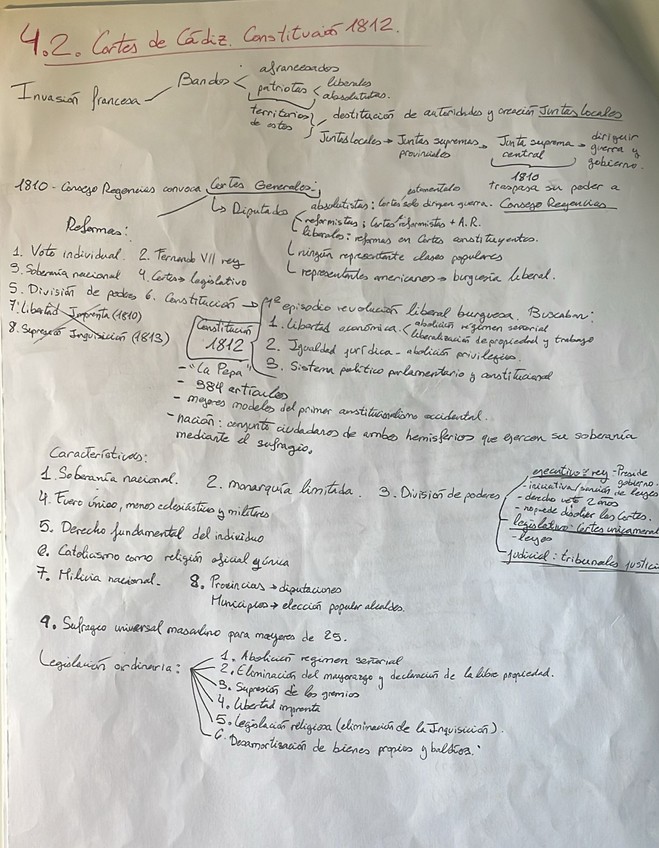 4.2. Cortes de Cádiz. Constitución 1812.
Invasión francesa
Bandos
afrancesados
patriotas
liberales
absolutistas.
territorios de estos
destitución de autoridades y creación Juntas Locales
Juntas locales → Juntas supremas provinciales → Junta suprema central → dirigir guerra y gobierno.
1810
traspasa su poder a Consejo Regencias
1810 - Consejo Regencias convoca Cortes Generales:
↳ Diputados
absolutistas: Cortes solo dirigen guerra.
estamentales
reformistas: Cortes reformistas + A.R.
liberales: reformas en Cortes constituyentes.
ningún representante clases populares
representantes americanos → burguesía liberal.
Reformas:
1. Voto individual. 2. Fernando VII rey
3. Soberanía nacional 4. Cortes → legislativo
5. División de poderes 6. Constitución → 1er episodio revolución liberal burguesa. Buscaban:
7. Libertad Imprenta (1810)
8. Supresión Inquisición (1813)
Constitución 1812
1. Libertad económica
abolición régimen señorial
liberalización de propiedad y trabajo
2. Igualdad jurídica - abolición privilegios.
3. Sistema político parlamentario y constitucional
- "La Pepa"
- 384 artículos
- mejores modelos del primer constitucionalismo occidental.
- nación: conjunto ciudadanos de ambos hemisferios que ejercen su soberanía
mediante el sufragio.
Características:
1. Soberanía nacional. 2. monarquía limitada. 3. División de poderes
ejecutivo: rey - Preside gobierno.
- iniciativa/sanción de leyes
- derecho veto 2 años
- no puede disolver las Cortes.
legislativo: Cortes unicameral
- leyes
judicial: tribunales justicia
4. Fuero único, menos eclesiástico y militares
5. Derecho fundamental del individuo
6. Catolicismo como religión oficial y única
7. Milicia nacional. 8. Provincias → diputaciones
Municipios → elección popular alcaldes.
9. Sufragio universal masculino para mayores de 25.
Legislación ordinaria:
1. Abolición régimen señorial
2. Eliminación del mayorazgo y declaración de la libre propiedad.
3. Supresión de los gremios
4. Libertad imprenta
5. Legislación religiosa (eliminación de la Inquisición).
6. Desamortización de bienes propios y baldíos.